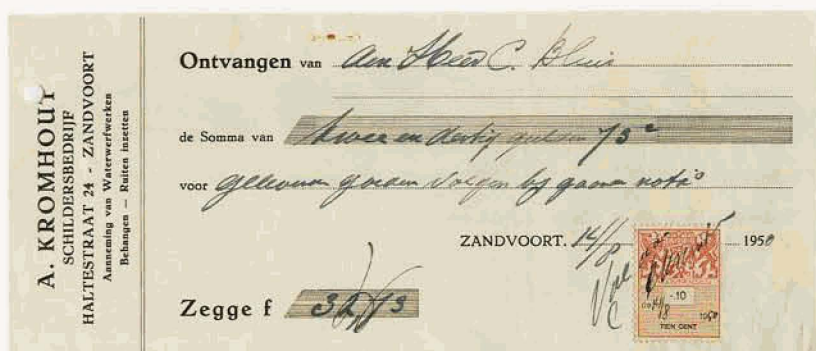 A. KROMHOUT
SCHILDERSBEDRIJF
HALTESTRAAT 24 - ZANDVOORT
Aanneming van Waterwerfwerken
Behangen — Ruiten inzetten
Ontvangen van den Heer C. Bluis
de Somma van twee en dertig gulden 73 c
voor geleverde goederen volgen bij gaande nota's
ZANDVOORT. 14/8 1950
Zegge f 32,73
-.10
14/8 1950
TIEN CENT